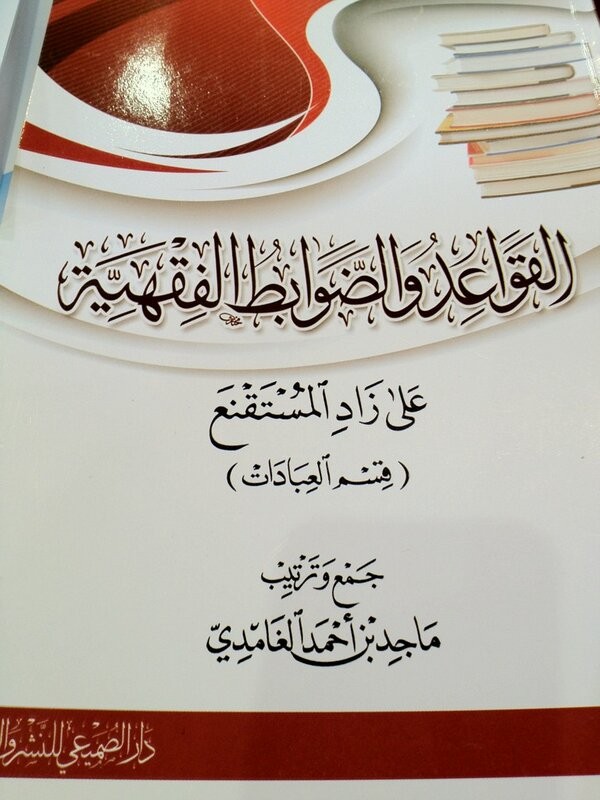 القَوَاعِدُ وَالضَّوَابِطُ الفِقْهِيَّة
عَلىٰ زَادِ المُسْتَقْنِعَ
(قِسْم العِبَادَات)
جَمْع وَتَرْتِيب
مَاجِد بْن أَحْمَد الغَامْدِيّ
دَارُ الصُّمَيْعِي لِلنَّشْرِ وَال